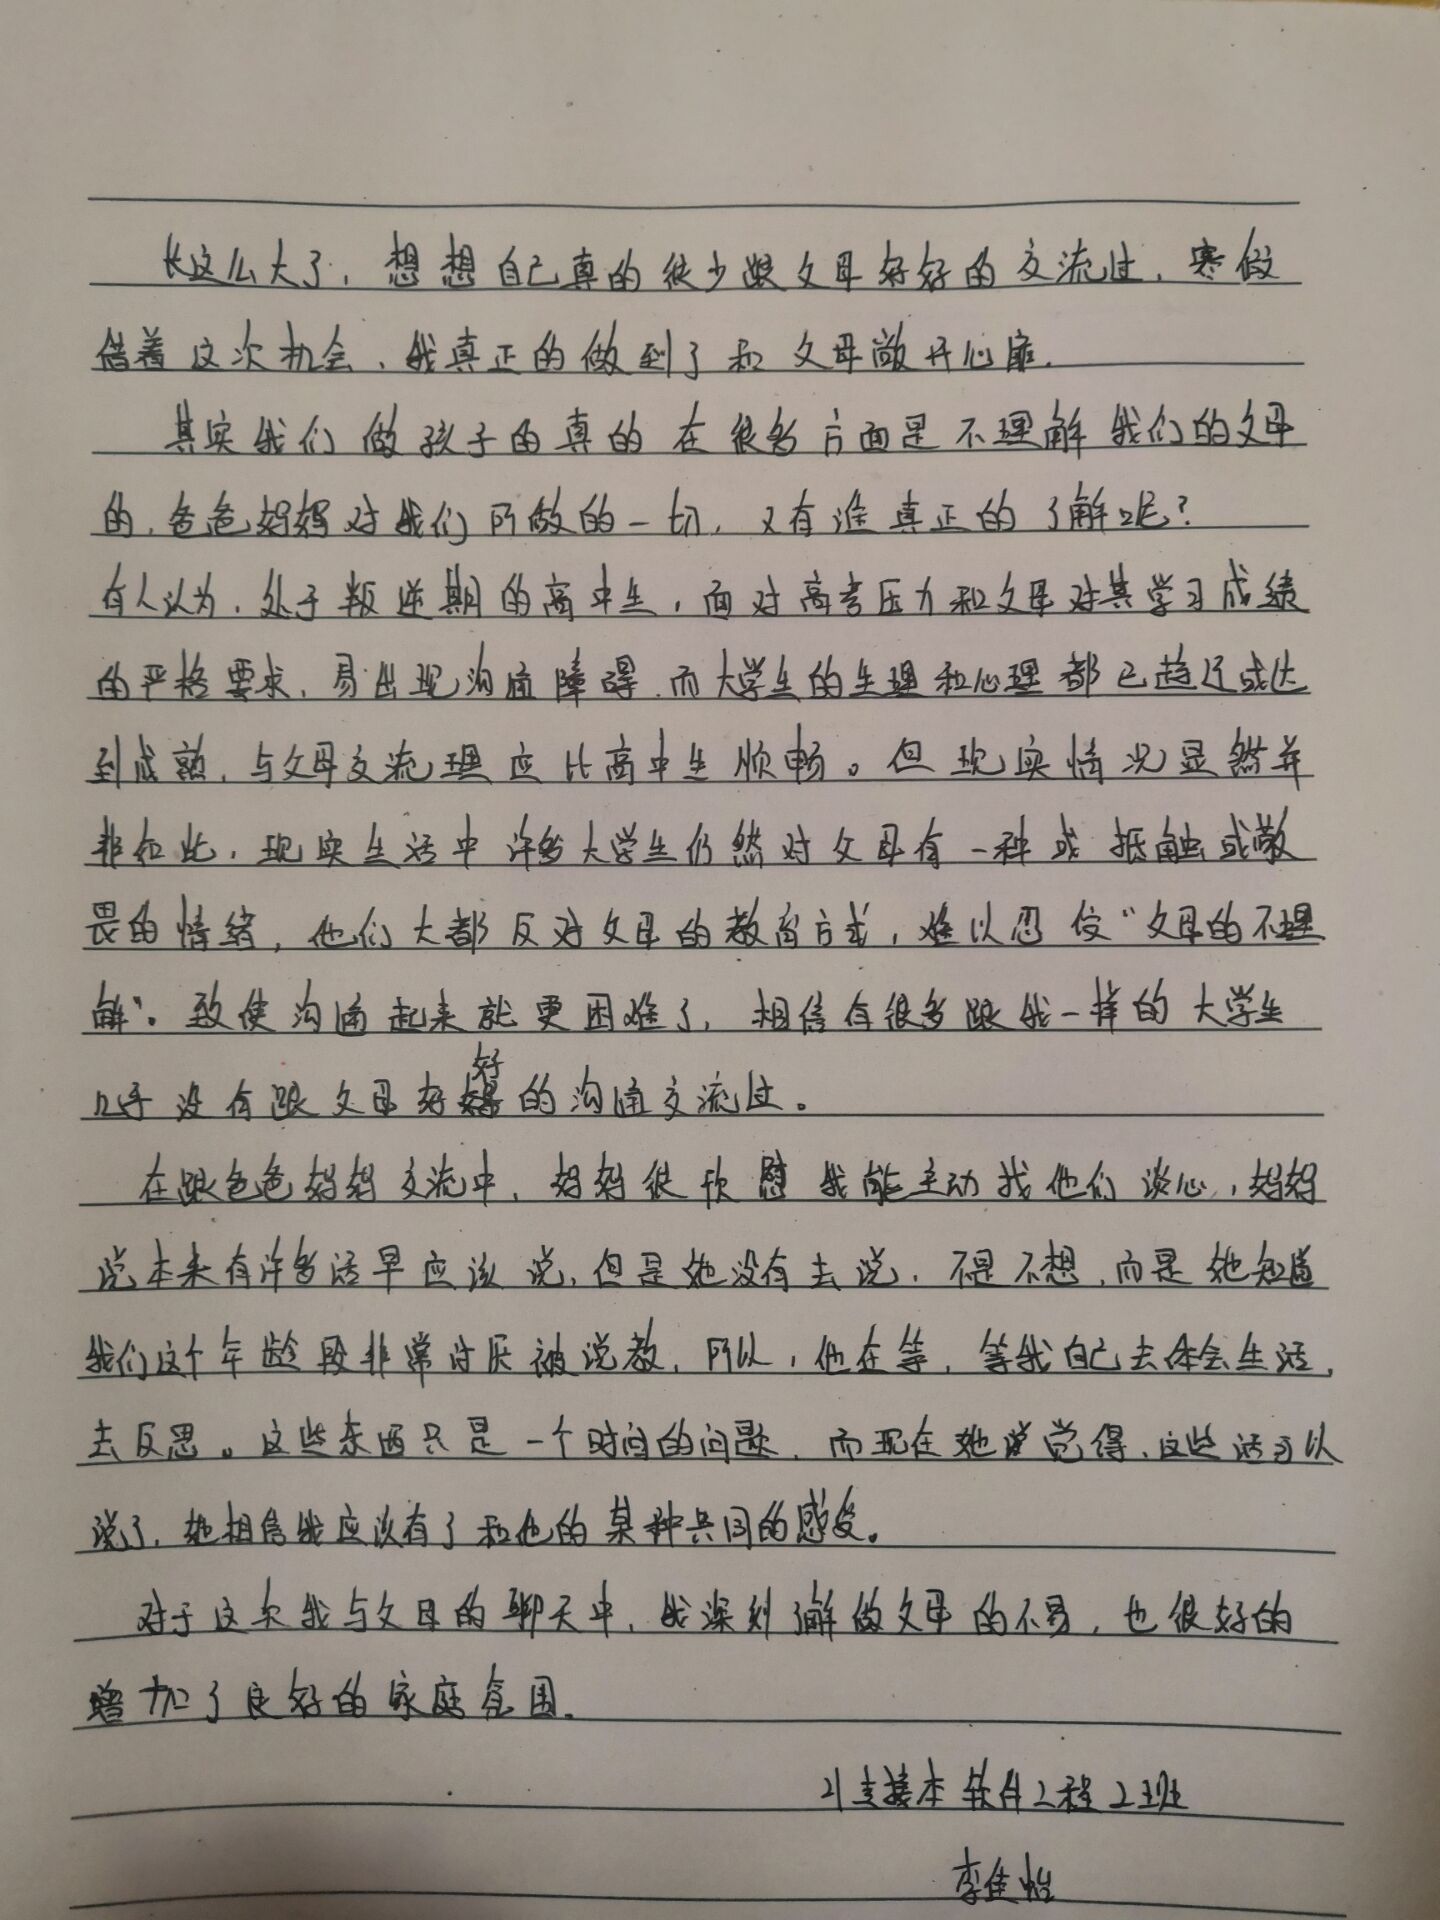 长这么大了，想想自己真的很少跟父母好好的交流过，寒假
借着这次机会，我真正的做到了和父母敞开心扉.
其实我们做孩子的真的在很多方面是不理解我们的父母
的，爸爸妈妈对我们所做的一切，又有谁真正的了解呢?
有人认为，处于叛逆期的高中生，面对高考压力和父母对其学习成绩
的严格要求，易出现沟通障碍，而大学生的生理和心理都已趋近或达
到成熟，与父母交流理应比高中生顺畅。但现实情况显然并
非如此，现实生活中许多大学生仍然对父母有一种或抵触或敬
畏的情绪，他们大都反对父母的教育方式，难以忍受“父母的不理
解”。致使沟通起来就更困难了，相信有很多跟我一样的大学生
几乎没有跟父母好好的沟通交流过。
在跟爸爸妈妈交流中，妈妈很欣慰我能主动找他们谈心，妈妈
说本来有许多话早应该说，但是她没有去说，不是不想，而是她知道
我们这个年龄段非常讨厌被说教，所以，他在等，等我自己去体会生活，
去反思。这些东西只是一个时间的问题，而现在她觉得，这些话可以
说了，她相信我应该有了和他的某种共同的感受。
对于这次我与父母的聊天中，我深刻了解做父母的不易，也很好的
增加了良好的家庭氛围。
21专接本软件工程2班
李佳怡